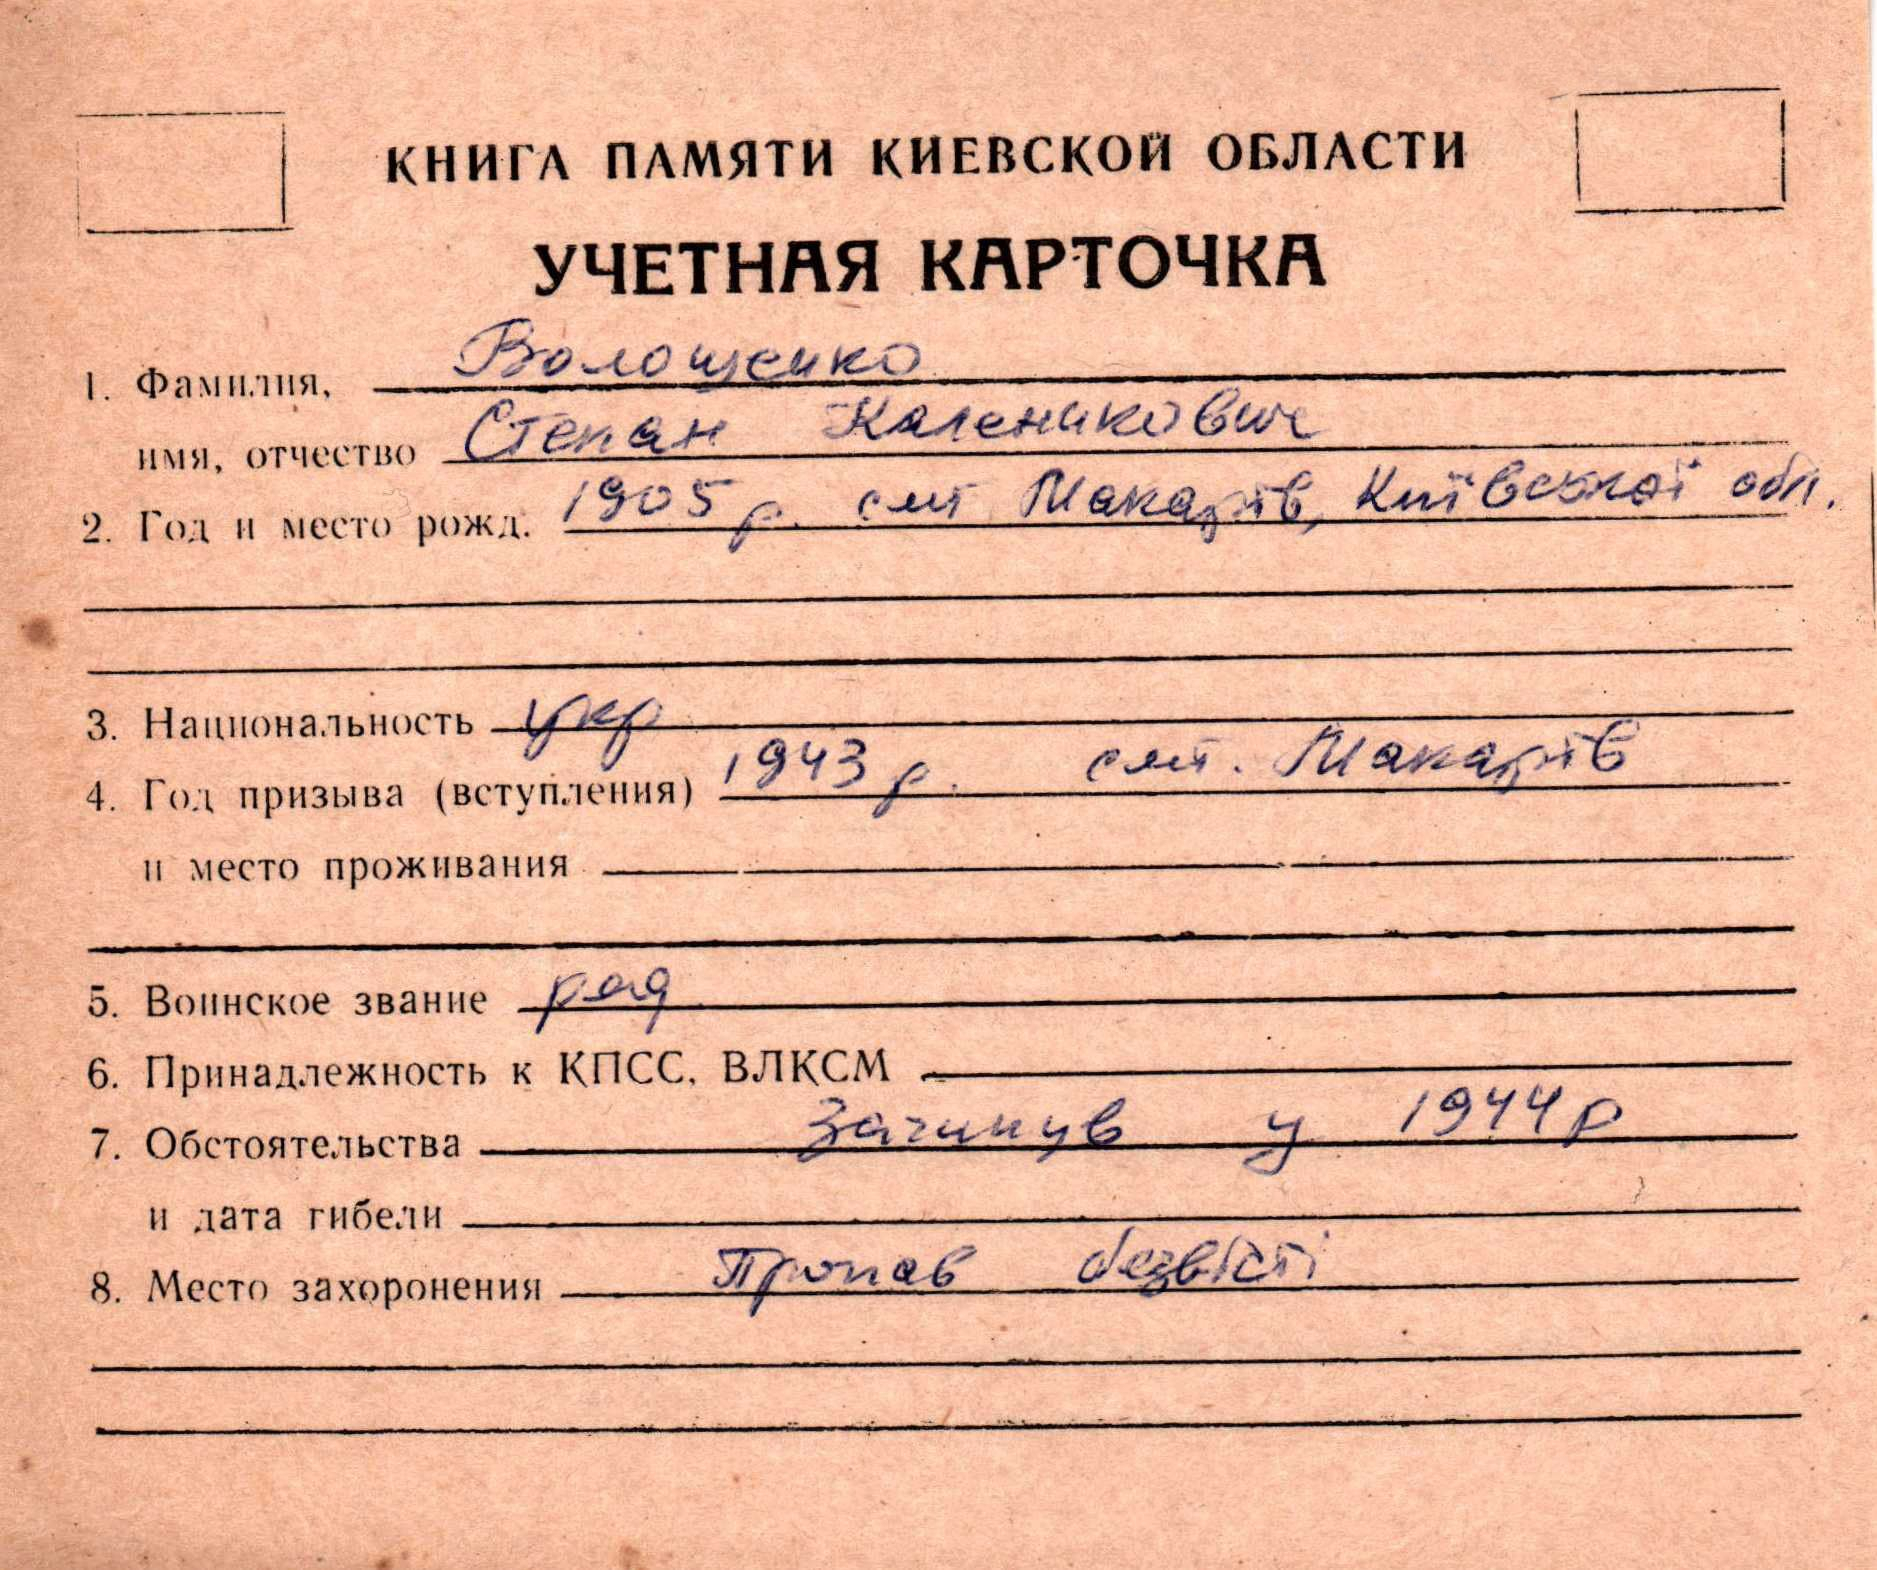 КНИГА ПАМЯТИ КИЕВСКОЙ ОБЛАСТИ
УЧЕТНАЯ КАРТОЧКА
1. Фамилия, Волощенко
имя, отчество Степан Каленикович
2. Год и место рожд. 1905 р. смт Макарів, Київської обл.
3. Национальность укр
4. Год призыва (вступления) 1943 р. смт. Макарів
и место проживания
5. Воинское звание ряд
6. Принадлежность к КПСС, ВЛКСМ
7. Обстоятельства Загинув у 1944 р
и дата гибели
8. Место захоронения Пропав безвісті